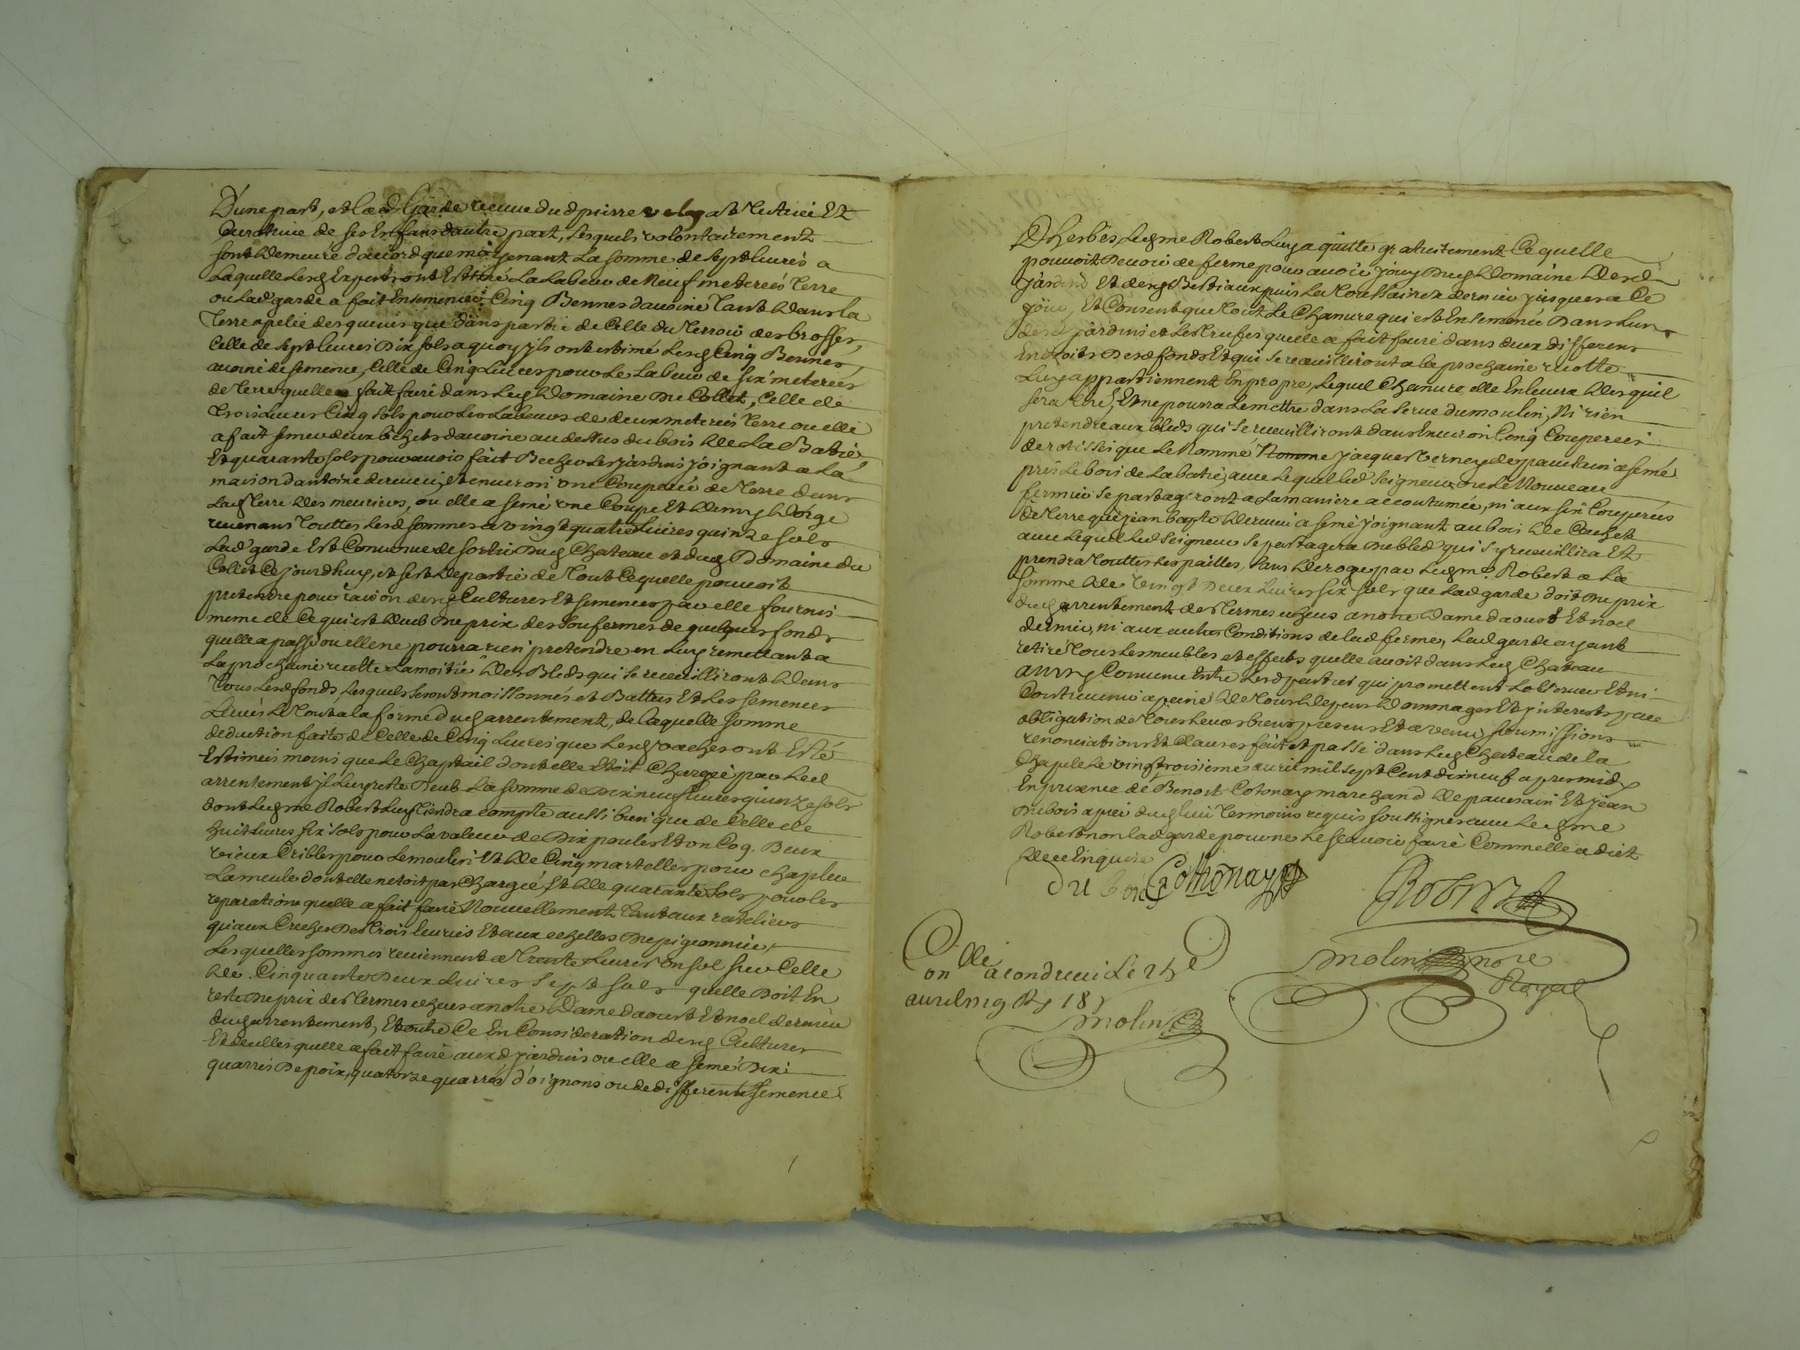 D'une part, et lad Garde veuve dud pierre velay at Tutrice Et
Curatrice de ses Enfans dautre part, lesquels volontairement
sont demeuré d'accord que moiyenant La somme de sept livres a
Laquelle lesd Expert ont Estimé La Labeur de Neuf meterées Terre
ou Lad garde a fait Ensemencer Cinq Bennes davoine Tant dans la
Terre apelée des queues que dans partie de Celle du Terroir des brosses,
Celle de sept livres Dix sols a quoy ils ont estimé Lesd Cinq Bennes
avoine de semence, Celle de Cinq Livres pour Le Labeur de six meterées
de Terre quelle a fait faire dans Led Domaine du Collet, Celle de
Trois Livres Cinq sols pour Les Labeurs de deux meterées Terre ou elle
a fait semer deux bichets davoine au dessus du bois de La Batie,
Et quarante sols pour avoir fait Becher Les Jardins joignant a La
maison dantoine dervieu, et environ une Couperée de Terre dans
Lad Terre des meuriers, ou elle a semé une Coupe Et demy dorge
revenans Touttes Lesd sommes a vingt quatre Livres quinze sols
Lad garde Est Convenue de sortir dud Chateau et dud Domaine du
Collet Ce jourdhuy, et sest departie de Tout Ce quelle pouvoit
pretendre pour raison desd Cultures Et semences par elle fournis
meme de Ce qui est deub du prix des soufermes de quelques fonds
quelle a passé ou elle ne pourra rien pretendre en Luy remettant a
La prochaine recolte La moitié des Bleds qui se recueilliront dans
Tous Lesd fonds Lesquels seront moissonnés et Battus Et Les semences
Levées Le Tout a la forme dud arrentement, de Laquelle somme
deduction faite de Celle de Cinq Livres que Lesd vaches ont Esté
Estimées moins que Le Chaptail dont elle Etoit Chargée par Led
arrentement il Luy reste deub La somme de Dix neuf livres quinze sols
dont Led me Robert Luy Tiendra compte aussi bien que de Celle de
huit Livres six sols pour La valeur de Dix poules Et un Coq, Deux
vieux Cribles pour Le moulin Et de Cinq martelles pour chapler
La meule dont elle netoit pas Chargée Et de quarante sols pour les
reparations quelle a fait faire Nouvellement Tant aux rateliers
qu'aux Creches des Trois Ecuries Et aux echelles du pigeonnier,
Lesquelles sommes reviennent a Trente Livres un sol sur Celle
de Cinquante Deux Livres sept sols quelle Doit En
reste du prix des Termes echeus a notre Dame daoust Et noel dernier
dud arrentement, Et outre Ce En Consideration desd Cultures
Et de celles quelle a fait faire auxd Jardins ou elle a semé Dix
quarrés de poix, quatorze quarrés d'oignons ou de differentes semences
D'herbes, Led me Robert Luy a quitté gratuitement Ce quelle
pouvoit Devoir de ferme pour avoir joüy Dud Domaine desd
Jardins Et desd Bestiaux puis La Toussaint dernier jusques a Ce
jour, Et Consent que Tout Le Chanvre qui est Ensemencé Dans Lun
desd Jardins et Les Trufes quelle a fait faire dans deux differens
Endroits desd fonds Et qui se recuilliront a la prochaine recolte
Luy appartiennent En propre, Lequel Chanvre elle Enlevera des quil
sera Tiré, Et ne pourra Le mettre dans La serve du moulin, Ni rien
pretendre aux bleds qui se recueilliront dans Environ Cinq Couperées
de rotisse que Le Nommé Homme jacques Verney de pavesain a semé
près Le bois de La batie, avec Lequel Led seigneur ou Le Nouveau
fermier se partageront a La maniere accoutumée, ni aux six Couperées
de Terre que jean bapte dervieu a semé joignant au bois de Couzet
avec Lequel Led seigneur se partagera du bled qui s'y recueillira Et
prendra Touttes Les pailles, sans deroger par Led me Robert a La
somme de vingt Deux Livres six sols que Lad garde doit du prix
dud arrentement des Termes echeus a notre Dame daoust Et noel
dernier, ni aux autres Conditions de lad ferme, Lad garde ayant
retiré Tous Les meubles et effects quelle avoit dans Led Chateau
ainsy Convenu Entre Lesd parties qui promettent Lobserver Et ni
Contrevenir a peine de Tous depens dommages Et interests par
obligation de Tous Leurs biens presens Et a venir soumissions
renonciations Et Clauses fait et passé dans Led Chateau de la
Chapele Le vingt troisieme avril mil sept Cent dix neuf apres midy
En presence de Benoit Cotonay marchand de pavesain Et jean
Dubois apier dud lieu Temoins requis soussignés avec Led me
Robert non lad garde pour ne Le sçavoir faire Comme elle a dict
de ce Enquise
du bois Cothonay
Robert
molin nore
Royal
Conlle a condrieu Le 25e
avril 1719 Rs 18s
molin